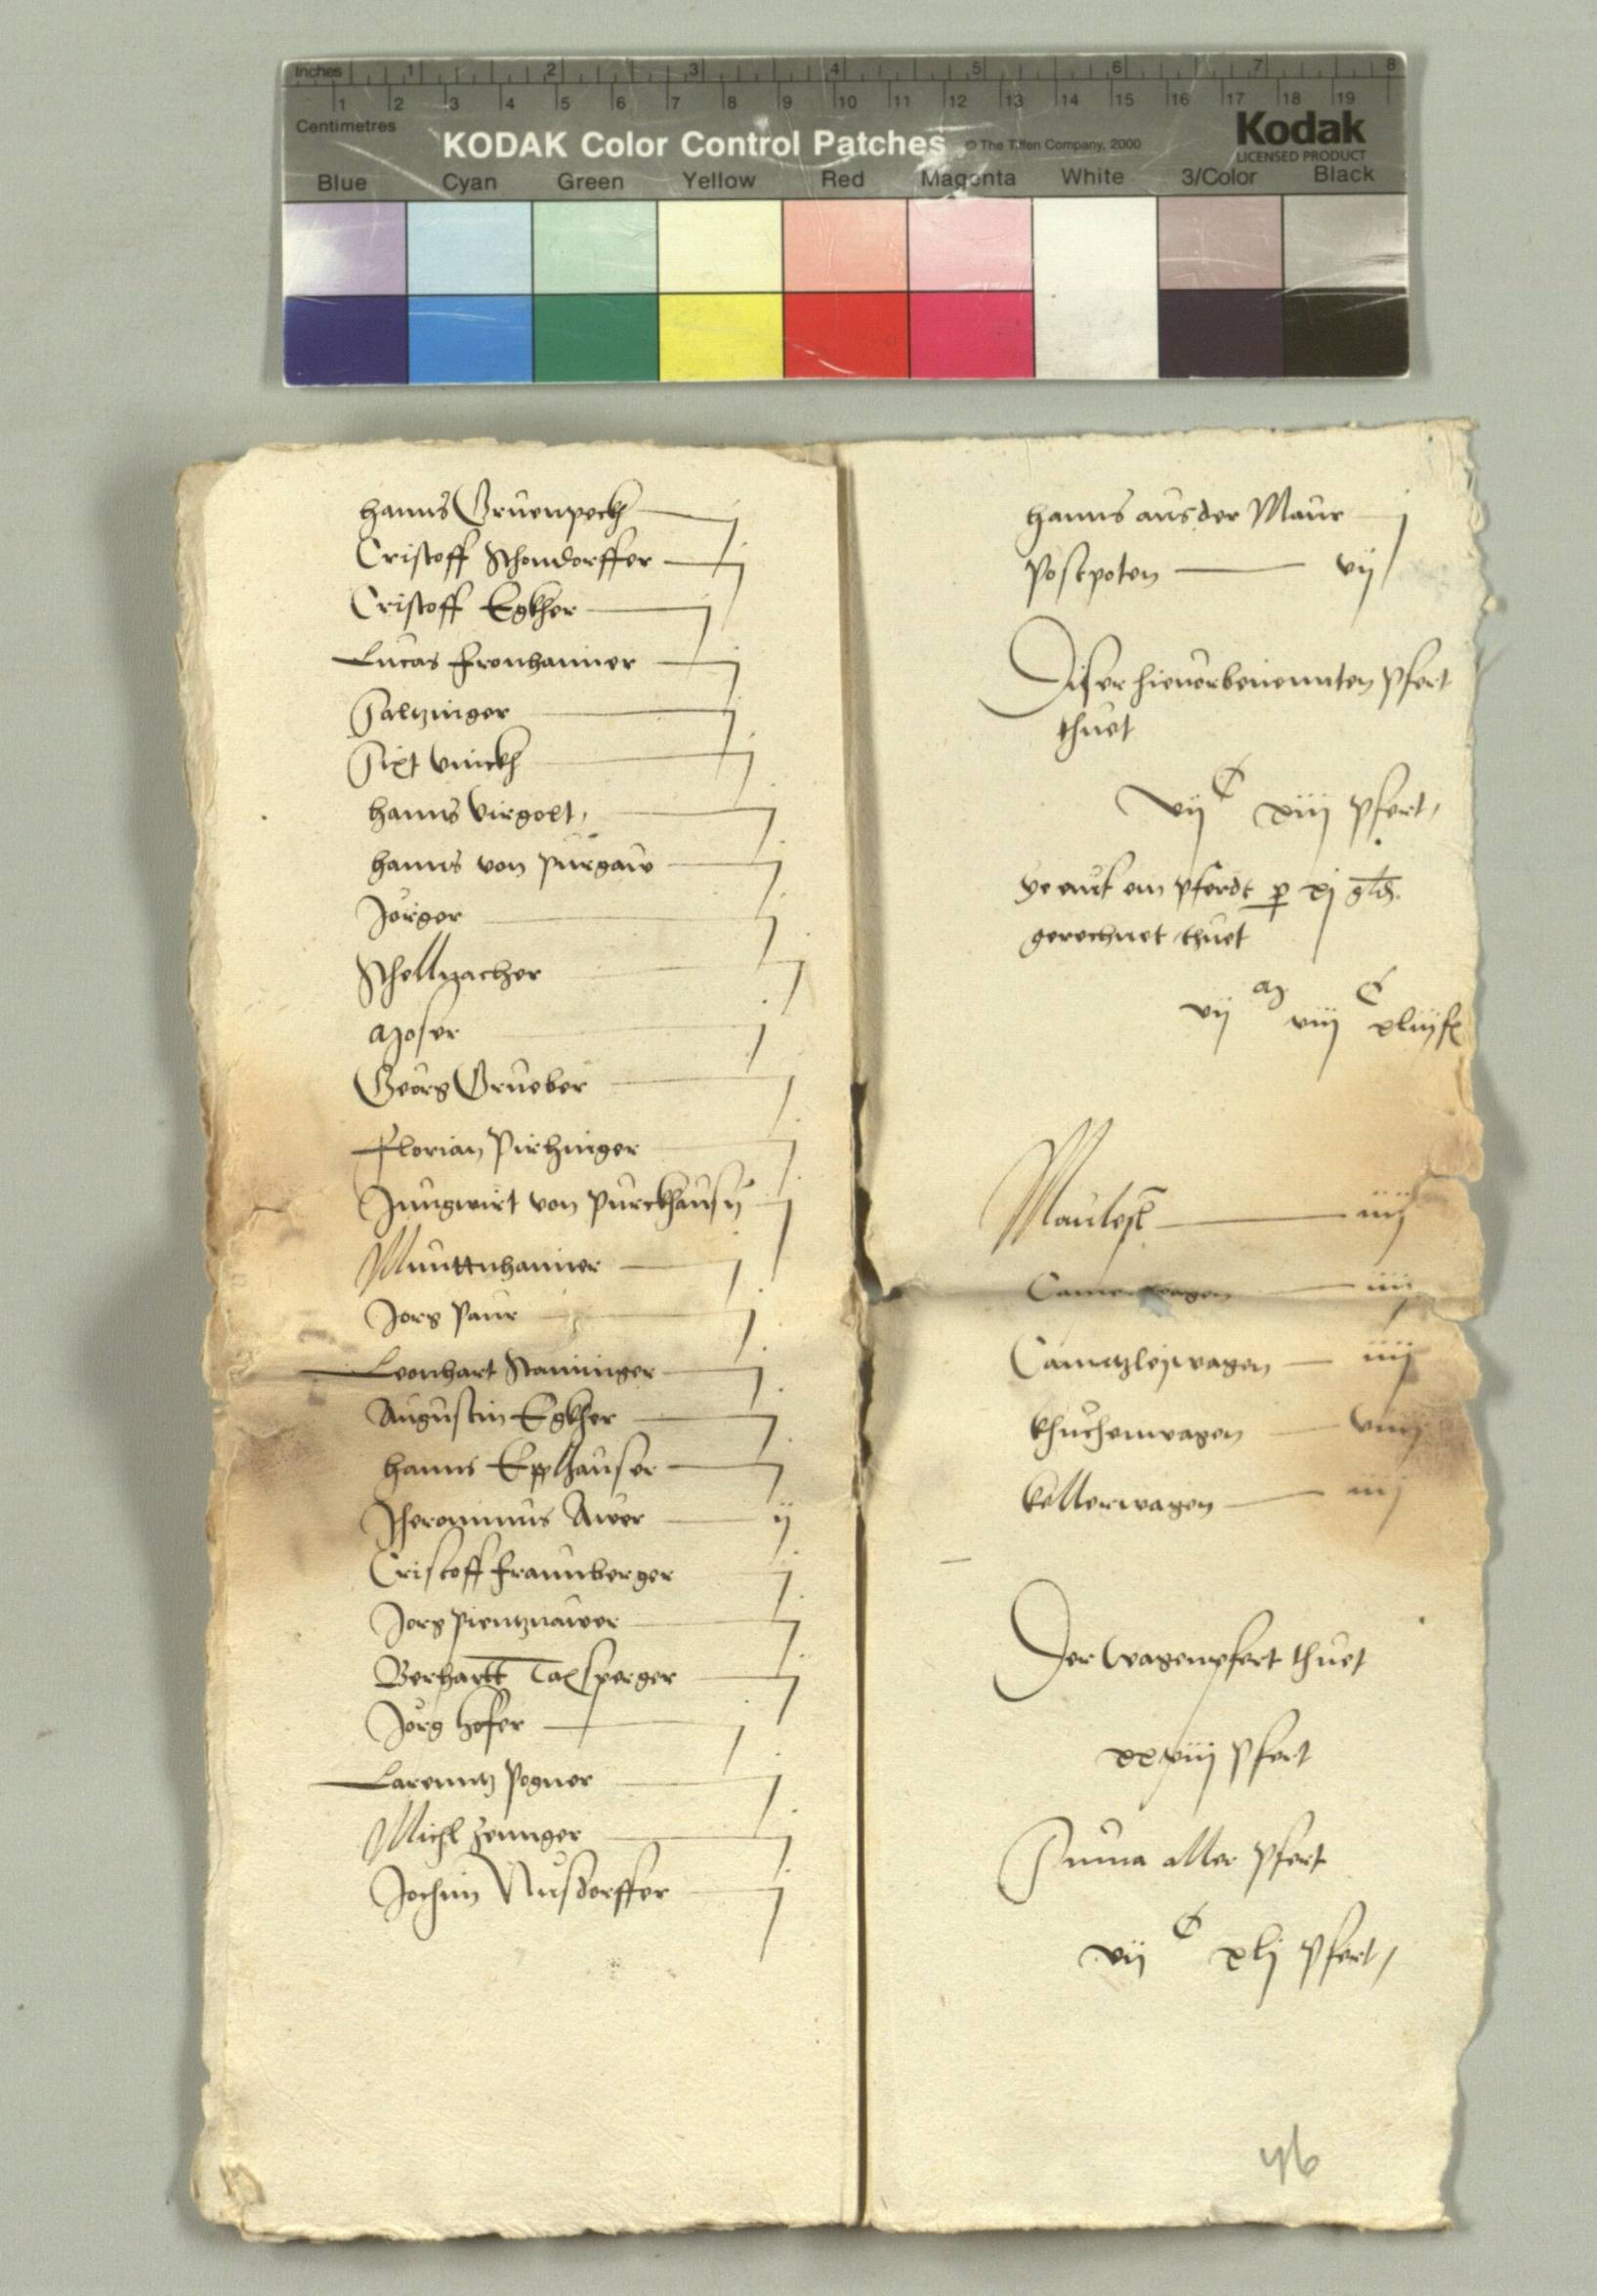 Inches 1 2 3 4 5 6 7 8
1 2 3 4 5 6 7 8 9 10 11 12 13 14 15 16 17 18 19
Centimetres
KODAK Color Control Patches © The Tiffen Company, 2000
Kodak
LICENSED PRODUCT
Blue Cyan Green Yellow Red Magenta White 3/Color Black
hanns Gruenpeckh j
Cristoff Schondorffer j
Cristoff Egkher j
Lucas fronhamer j
Saltzinger j
Sixt j
hanns virgolt j
hanns von purgaw j
Jörger j
j
Moser j
Georg Grueber j
Florian Pirhinger j
Jungwirt von purckhausn j
j
Jorg Paur j
Leonhart j
Augustin Egkher j
hanns Epplhauser j
Jheronimus Awer ij
Cristoff fraunberger j
Jorg pientznawer j
Berhartt Taxsperger j
Jörg hofer j
Larenntz Pogner j
Michl Zennger j
Jochim Nusdorffer j
hanns aus der Maur j
Postpoten vij
Diser hievorbenennten pfert
thuet
vij C xiij pfert
ye auf ein pferdt p xj gld.
gerechnet thuet
vij M viij C xliij fl
Maulesl iiij
Camerwagen iiij
Canntzleywagen iiij
khuchenwagen viiij
kellerwagen iiij
Der wagenpfert thuet
xxviij pfert
Suma aller pfert
vij C xlj pfert
46